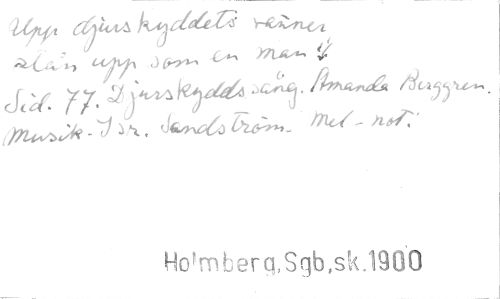 Upp djurskyddets vänner
stån upp som en man!
Sid. 77. Djurskyddssång. Amanda Berggren.
Musik - Isr. Sandström. Mel-not.
Holmberg,Sgb,sk.1900